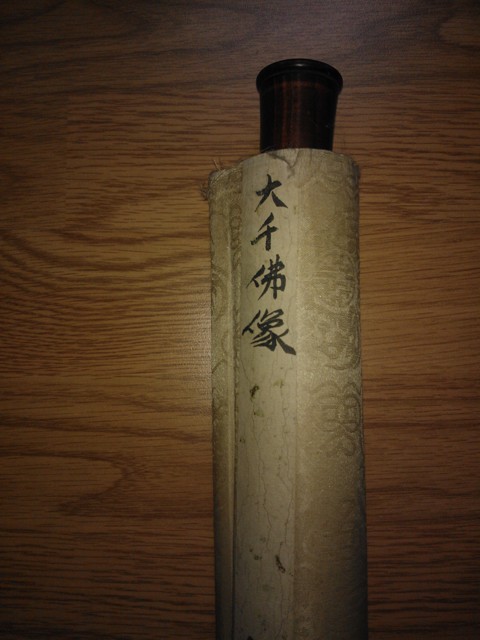 大千佛像